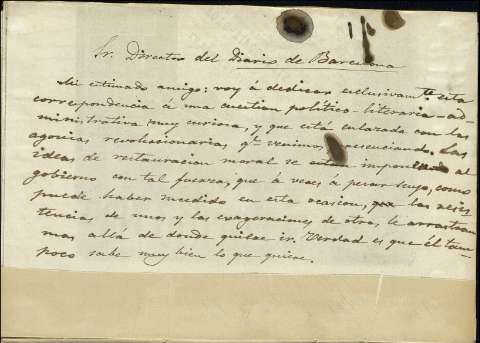 Sr. Director del Diario de Barcelona
Mi estimado amigo: voy á dedicar exclusivamte. esta
correspondencia á una cuestion politico-literaria-ad-
ministrativa muy curiosa, y que está enlazada con las
agonias revolucionarias qe. venimos presenciando. Las
ideas de restauracion moral se están imponiendo al
gobierno con tal fuerza, que á veces á pesar suyo, como
puede haber sucedido en esta ocasion, que las resis-
tencias de unos y las exageraciones de otros, le arrastran
mas allá de donde quiere ir. Verdad es que él tam-
poco sabe muy bien lo que quiere.